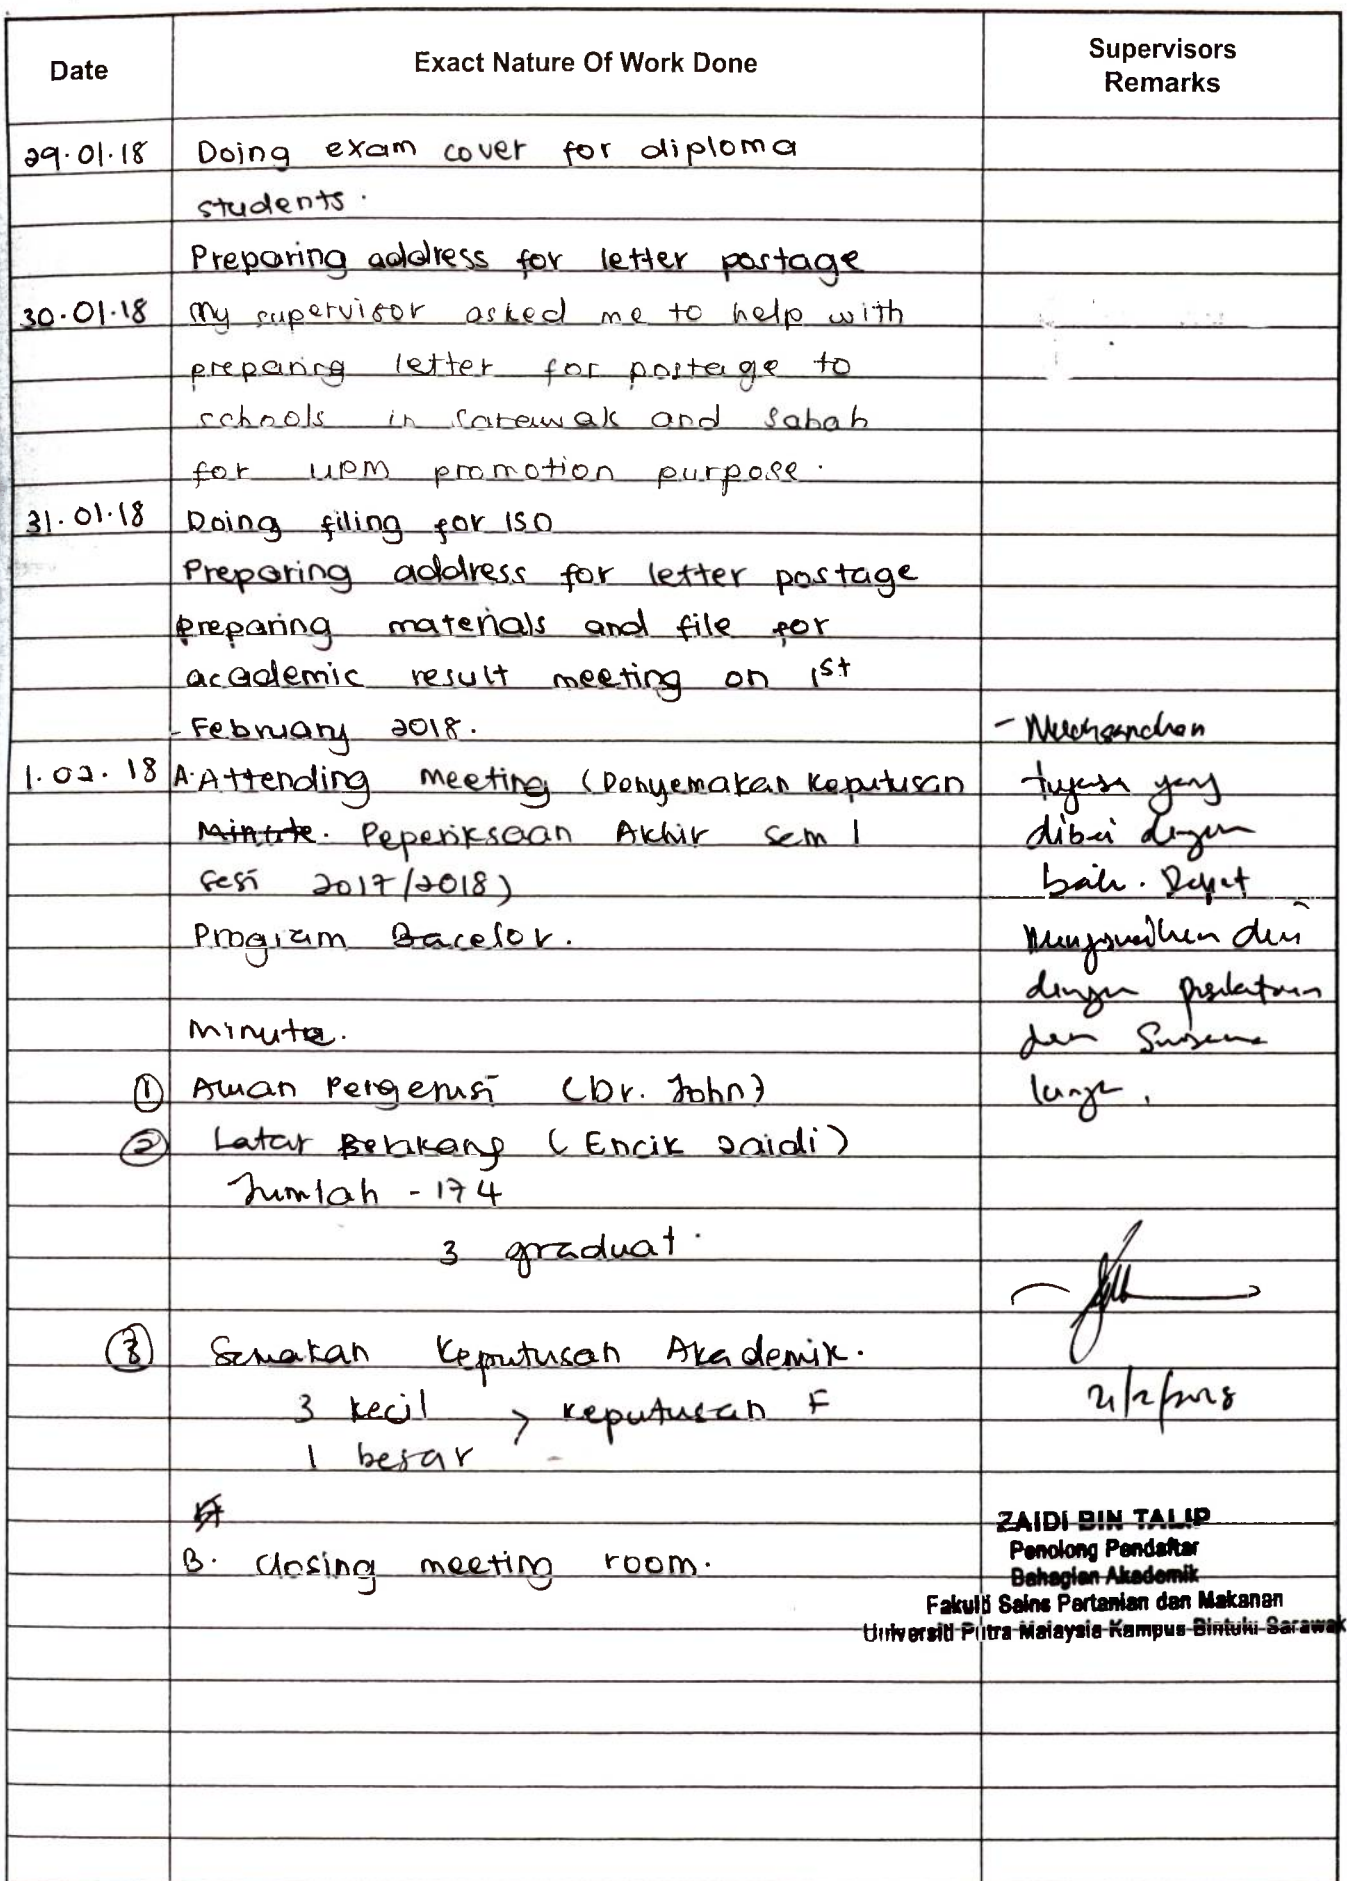 Date
Exact Nature Of Work Done
Supervisors
Remarks
29.01.18 Doing exam cover for diploma
students.
Preparing address for letter postage
30.01.18 My supervisor asked me to help with
preparing letter for postage to
schools in Sarawak and Sabah
for UPM promotion purpose.
31.01.18 Doing filing for ISO
Preparing address for letter postage
preparing materials and file for
academic result meeting on 1st
- February 2018.
1.02.18 A. Attending meeting (Penyemakan Keputusan
Minute. Peperiksaan Akhir Sem 1
Sesi 2017/2018)
Program Bacelor.
Minute.
① Aluan Pengerusi (Dr. John)
② Latar Belakang (Encik Zaidi)
Jumlah - 174
3 graduat.
③ Semakan Keputusan Akademik.
3 kecil > keputusan F
1 besar
B. Closing meeting room.
tugasan yang
diberi dengan
baik. Dapat
Menyesuaikan diri
dengan
dan Suasana
ZAIDI BIN TALIP
Penolong Pendaftar
Bahagian Akademik
Fakulti Sains Pertanian dan Makanan
Universiti Putra Malaysia Kampus Bintulu Sarawak